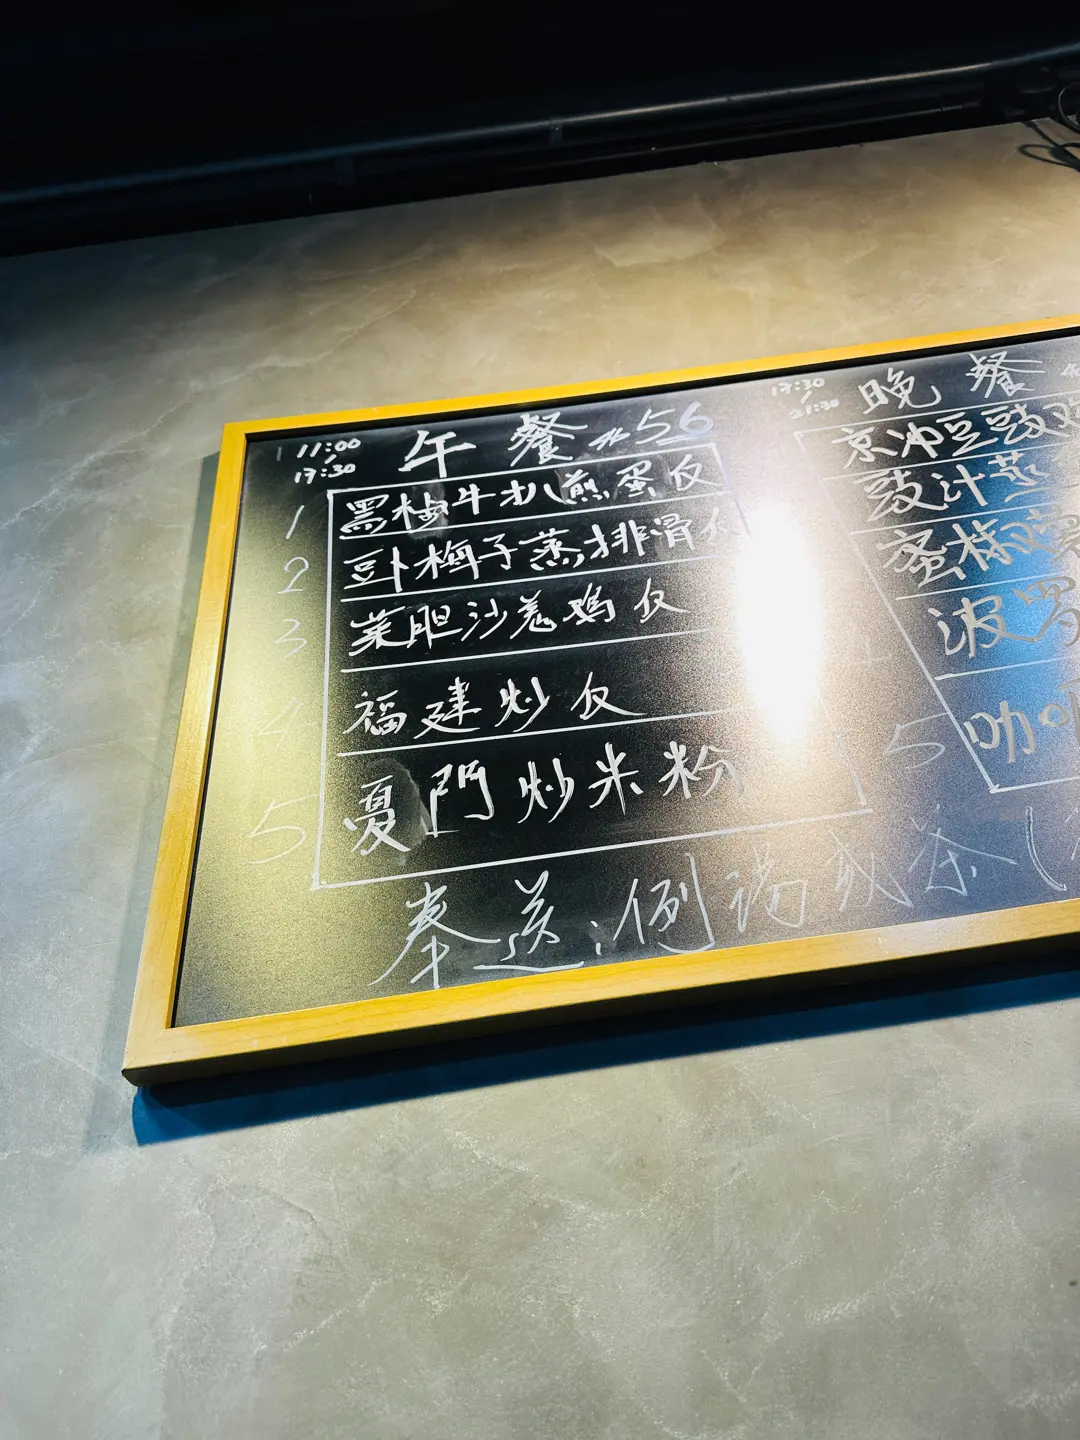 11:00
17:30
午餐 $56
1 黑椒牛扒煎蛋仅
2 豆卜梅子蒸排骨仅
3 菜胆沙羌鸡仅
4 福建炒仅
5 厦門炒米粉
17:30
21:30
晚餐
京冲豆豉鸡
豉汁蒸
蜜椒
波罗
5 咖
奉送:例汤或茶(